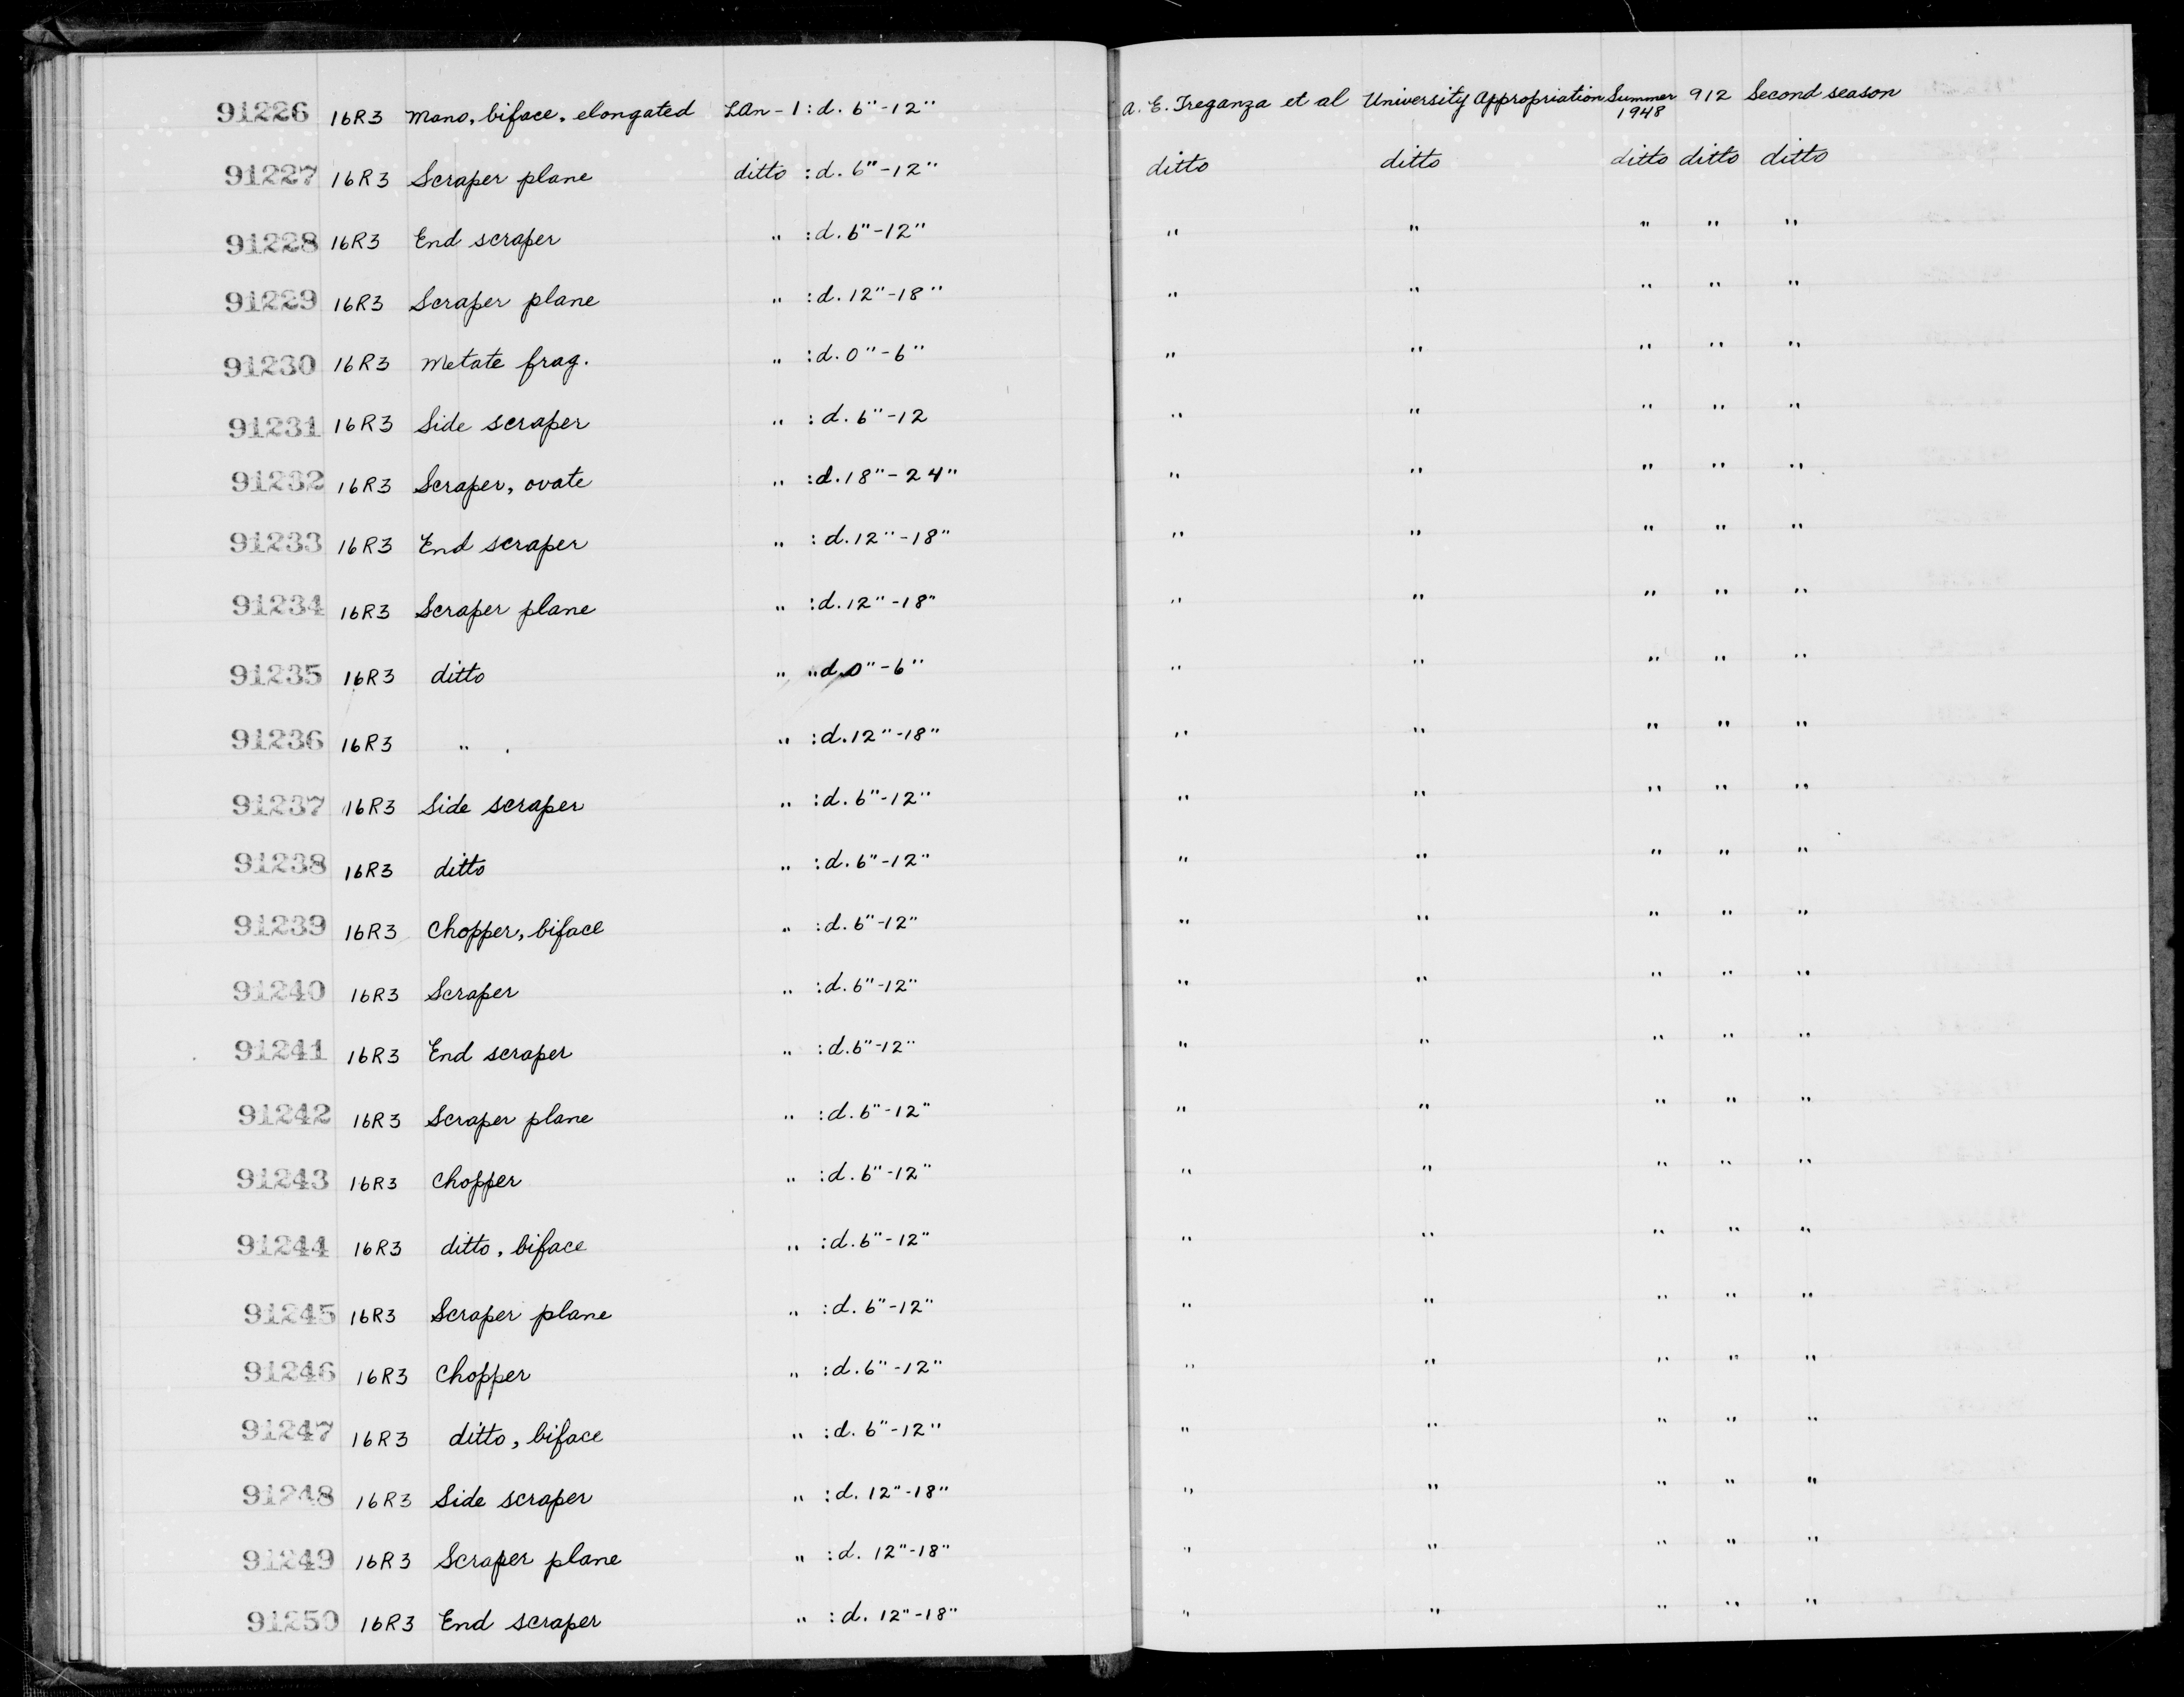 91226 16R3 Mano, biface, elongated LAn-1 : d. 6"-12" A. E. Treganza et al University Appropriation Summer 1948 912 Second season
91227 16R3 Scraper plane ditto : d. 6"-12" ditto ditto ditto ditto ditto
91228 16R3 End scraper " : d. 6"-12" " " " " "
91229 16R3 Scraper plane " : d. 12"-18" " " " " "
91230 16R3 Metate frag. " : d. 0"-6" " " " " "
91231 16R3 Side scraper " : d. 6"-12 " " " " "
91232 16R3 Scraper, ovate " : d. 18"-24" " " " " "
91233 16R3 End scraper " : d. 12"-18" " " " " "
91234 16R3 Scraper plane " : d. 12"-18" " " " " "
91235 16R3 ditto " " d. 0"-6" " " " " "
91236 16R3 " " : d. 12"-18" " " " " "
91237 16R3 Side scraper " : d. 6"-12" " " " " "
91238 16R3 ditto " : d. 6"-12" " " " " "
91239 16R3 Chopper, biface " : d. 6"-12" " " " " "
91240 16R3 Scraper " : d. 6"-12" " " " " "
91241 16R3 End scraper " : d. 6"-12" " " " " "
91242 16R3 Scraper plane " : d. 6"-12" " " " " "
91243 16R3 Chopper " : d. 6"-12" " " " " "
91244 16R3 ditto, biface " : d. 6"-12" " " " " "
91245 16R3 Scraper plane " : d. 6"-12" " " " " "
91246 16R3 Chopper " : d. 6"-12" " " " " "
91247 16R3 ditto, biface " : d. 6"-12" " " " " "
91248 16R3 Side scraper " : d. 12"-18" " " " " "
91249 16R3 Scraper plane " : d. 12"-18" " " " " "
91250 16R3 End scraper " : d. 12"-18" " " " " "